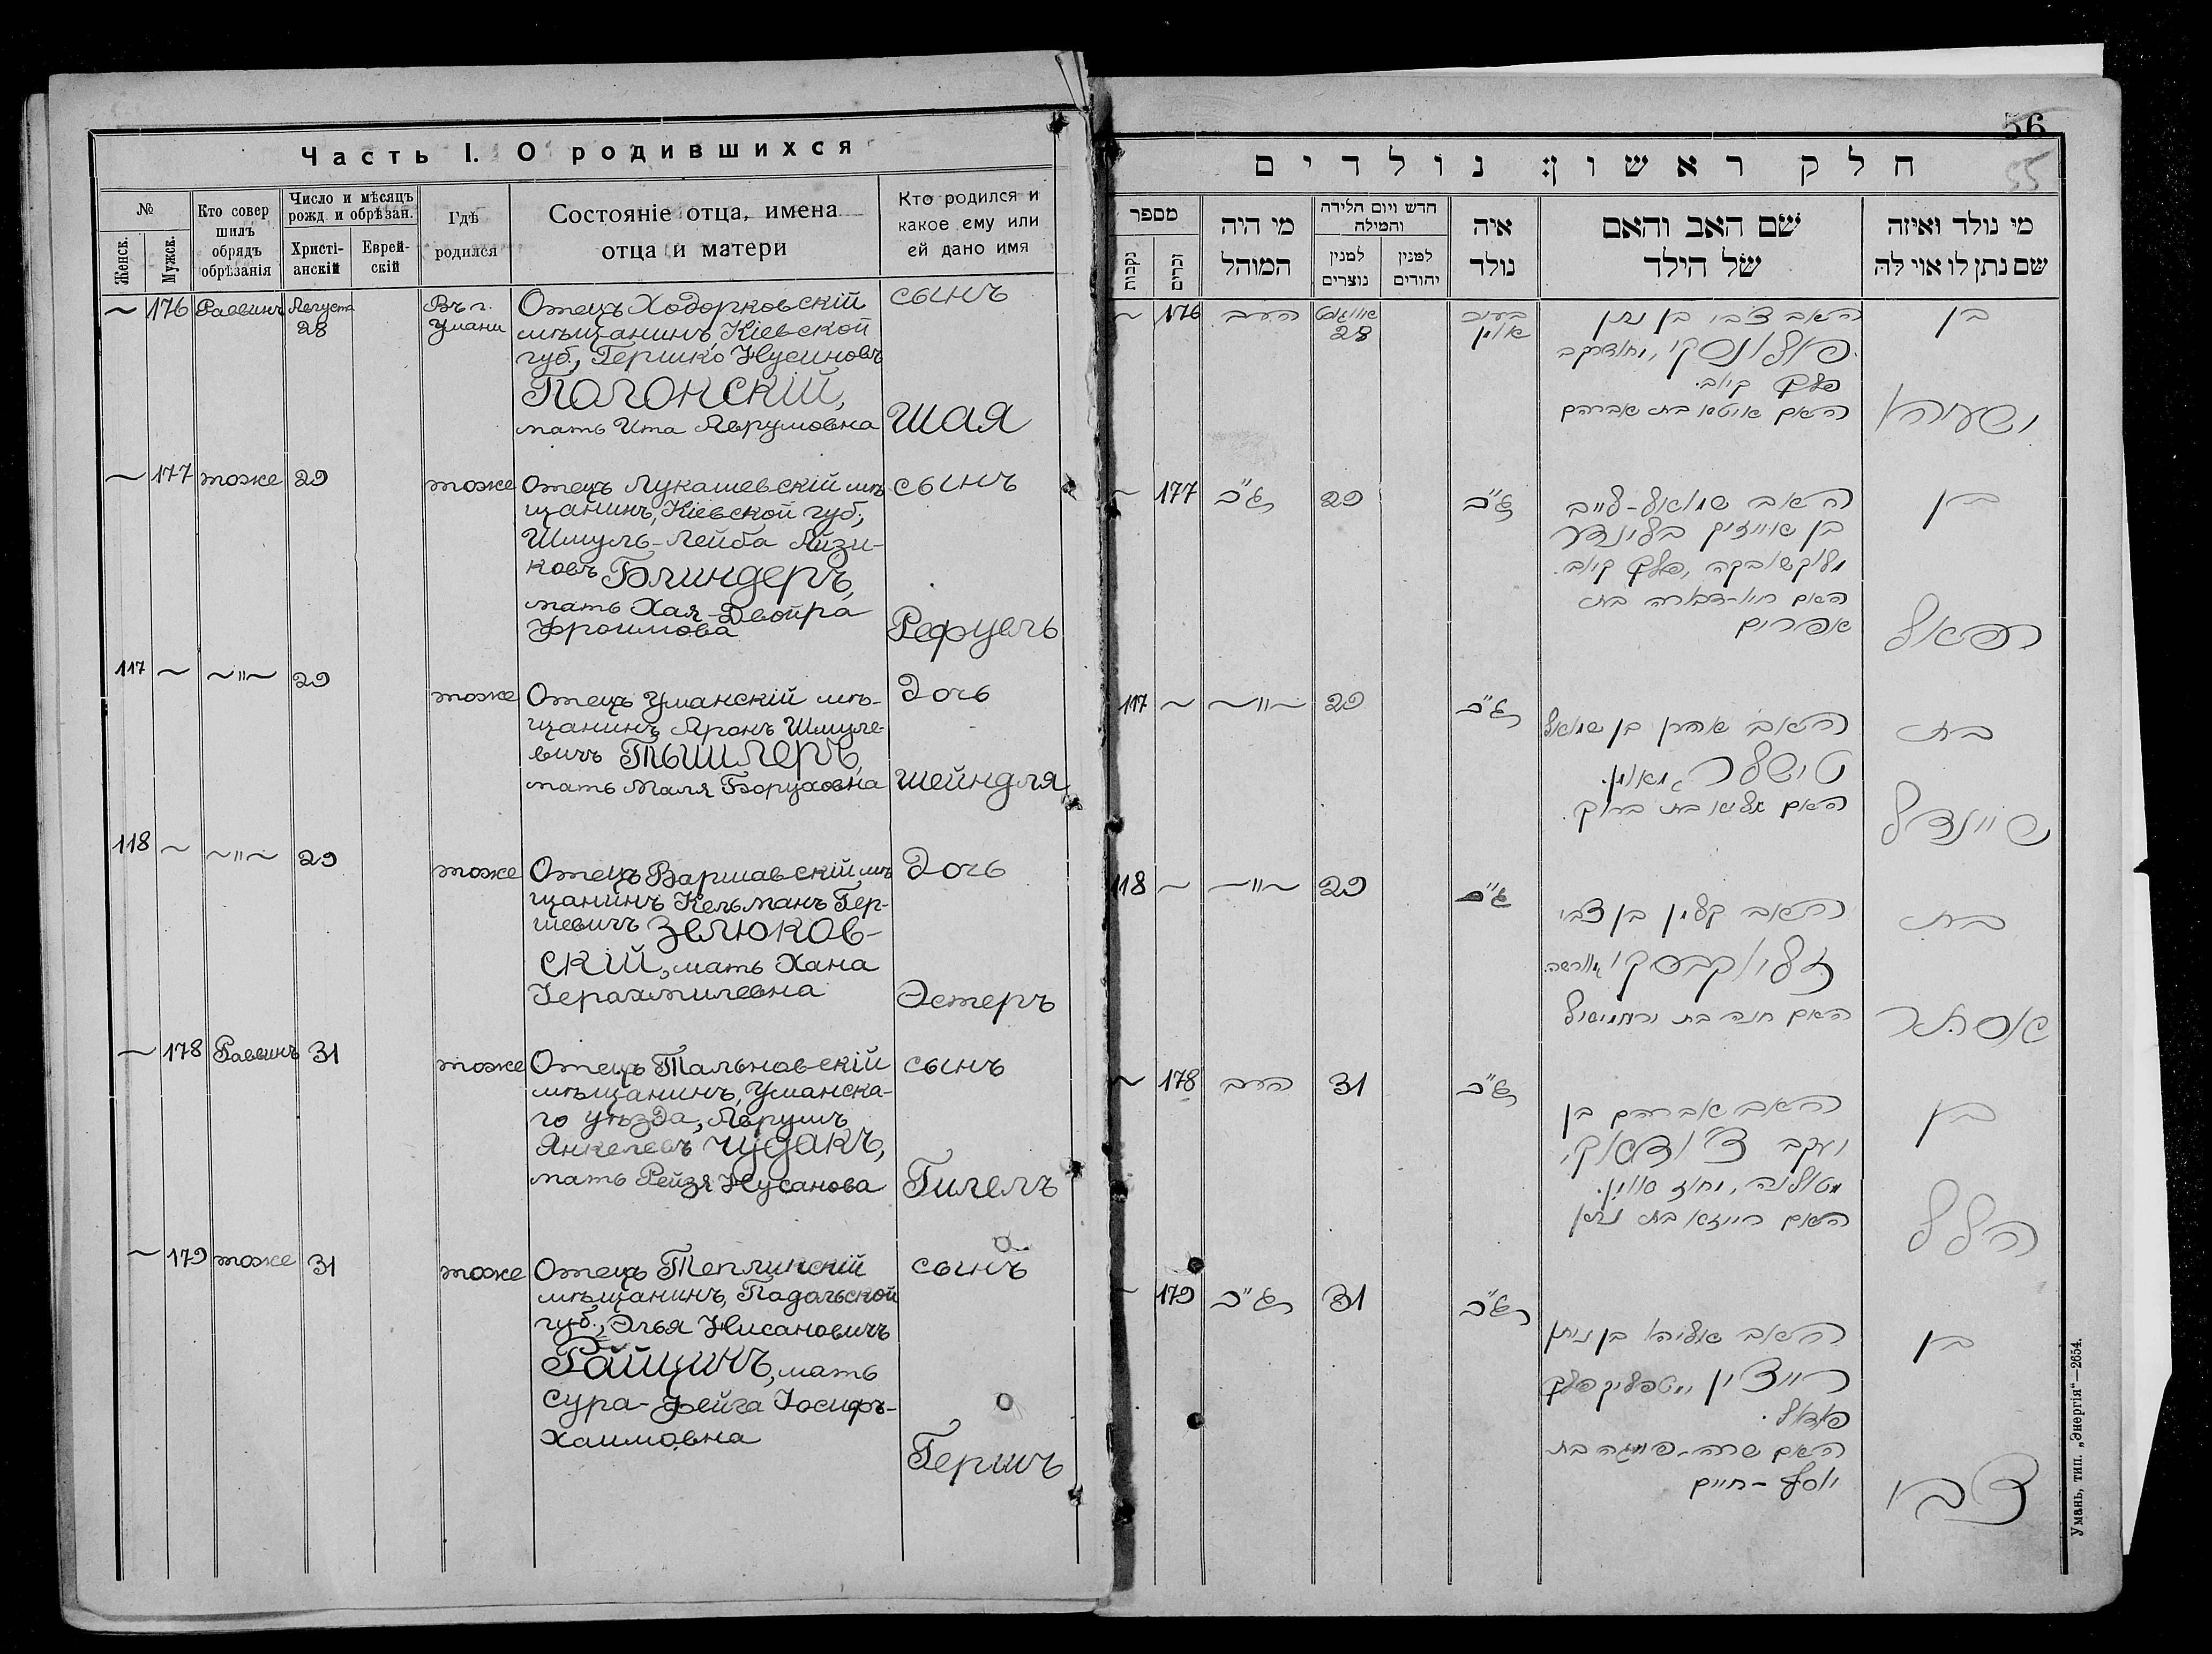 Часть I. О родившихся
№
Женск.
Мужск.
Кто совер
шилъ
обрядъ
обрѣзанія
Число и мѣсяцъ
рожд. и обрѣзан.
Христі-
анскій
Еврей-
скій
Гдѣ
родился
Состояніе отца, имена
отца и матери
Кто родился и
какое ему или
ей дано имя
~ 176 Раввинъ Августа
28
Въ г.
Умани
Отецъ Ходорковскій
мѣщанинъ, Кіевской
губ., Гершко Нусиновъ
Полонскій,
мать Ита Аврумовна
сынъ
Шая
~ 177 тоже 29 тоже
Отецъ Лукашевскій мѣ
щанинъ, Кіевской губ.,
Шмуль-Лейба Айзи-
ковъ Блиндеръ,
мать Хая-Двойра
Фроимова
сынъ
Рефуель
117 ~ ~"~ 29 тоже
Отецъ Уманскій мѣ-
щанинъ Аронъ Шмуле-
вичъ Тышлеръ,
мать Маля Боруховна
Дочь
Шейндля
118 ~ ~"~ 29 тоже
Отецъ Варшавскій мѣ
щанинъ Кельманъ Гер-
шевичъ Зелюков-
скій, мать Хана
Іерахмилевна
Дочь
Эстеръ
~ 178 Раввинъ 31 тоже
Отецъ Тальновскій
мѣщанинъ, Уманска-
го уѣзда, Аврумъ
Янкелевъ Чудакъ,
мать Рейзя Нусанова
сынъ
Гилелъ
~ 179 тоже 31 тоже
Отецъ Теплинскій
мѣщанинъ, Подольской
губ., Элья Нисановичъ
Райцинъ, мать
Сура-Фейга Іосифъ-
Хаимовна
сынъ
Гершъ
56
55
חלק ראשון: נולדים
מספר
נקבות
זכרים
מי היה
המוהל
חדש ויום הלידה
והמילה
למנין
נוצרים
למנין
יהודים
איה
נולד
שם האב והאם
של הילד
מי נולד ואיזה
שם נתן לו או לה
~ 176 הרב אווגוסט
28
בעיר
אומן
האב צבי בן נתן
פאלונסקי, מחודרקב
פלך קיוב.
האם איטא בת אברהם
בן
ישעיהו
~ 177 כנ"ל 29 כנ"ל
האב שמואל-לייב
בן אייזיק בלינדער
מלוקשובקה, פלך קיוב.
האם חיה-דבורה בת
אפרים
בן
רפאל
117 ~ ~"~ 29 כנ"ל
האב אהרן בן שמואל
טישלר מאומן.
האם מליא בת ברוך.
בת
שיינדל
118 ~ ~"~ 29 כנ"ל
האב קלמן בן צבי
זעליוקבסקי מוורשה.
האם חנה בת ירחמיאל
בת
אסתר
~ 178 הרב 31 כנ"ל
האב אברהם בן
יעקב צ'ודאק,
מטולנה, מחוז אומן.
האם רייזא בת נתן
בן
הלל
~ 179 כנ"ל 31 כנ"ל
האב אליהו בן ניסן
רייצין מטפליק פלך
פודול.
האם שרה-פייגה בת
יוסף-חיים
בן
צבי
Умань, тип. „Энергія“—2654.